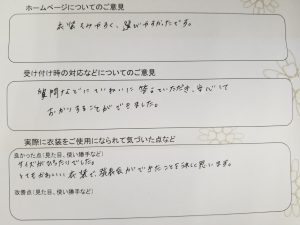 ホームページについてのご意見
衣装もみやすく、選びやすかったです。
受け付け時の対応などについてのご意見
質問などにていねいに答えていただき、安心して
おかりすることができました。
実際に衣装をご使用になられて気づいた点など
良かった点(見た目、使い勝手など)
サイズがぴったりでした。
とてもかわいい衣装で、発表会ができたことを嬉しく思います。
改善点(見た目、使い勝手など)